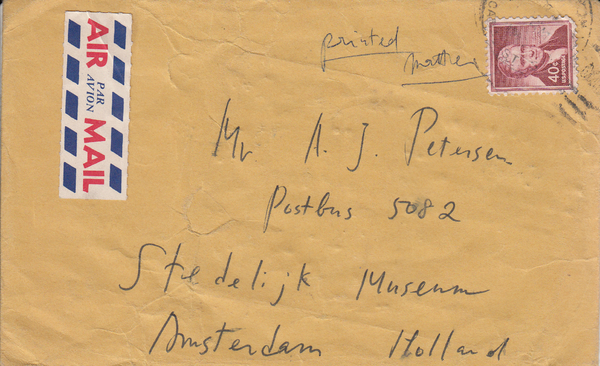 AIR MAIL
PAR AVION
printed
matter
40¢
U.S. POSTAGE
Mr A. J. Petersen
Postbus 5082
Stedelijk Museum
Amsterdam Holland